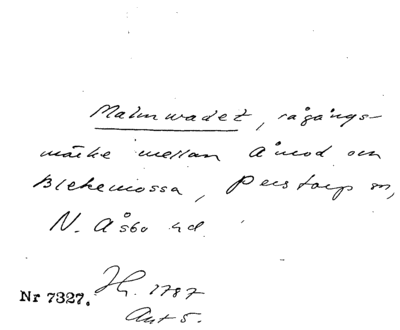 Malmwadet, rågångs-
märke mellan Åmod och
Blekemossa, Perstorp sn,
N. Åsbo hd.
Nr 7327.
1787
Akt 5.